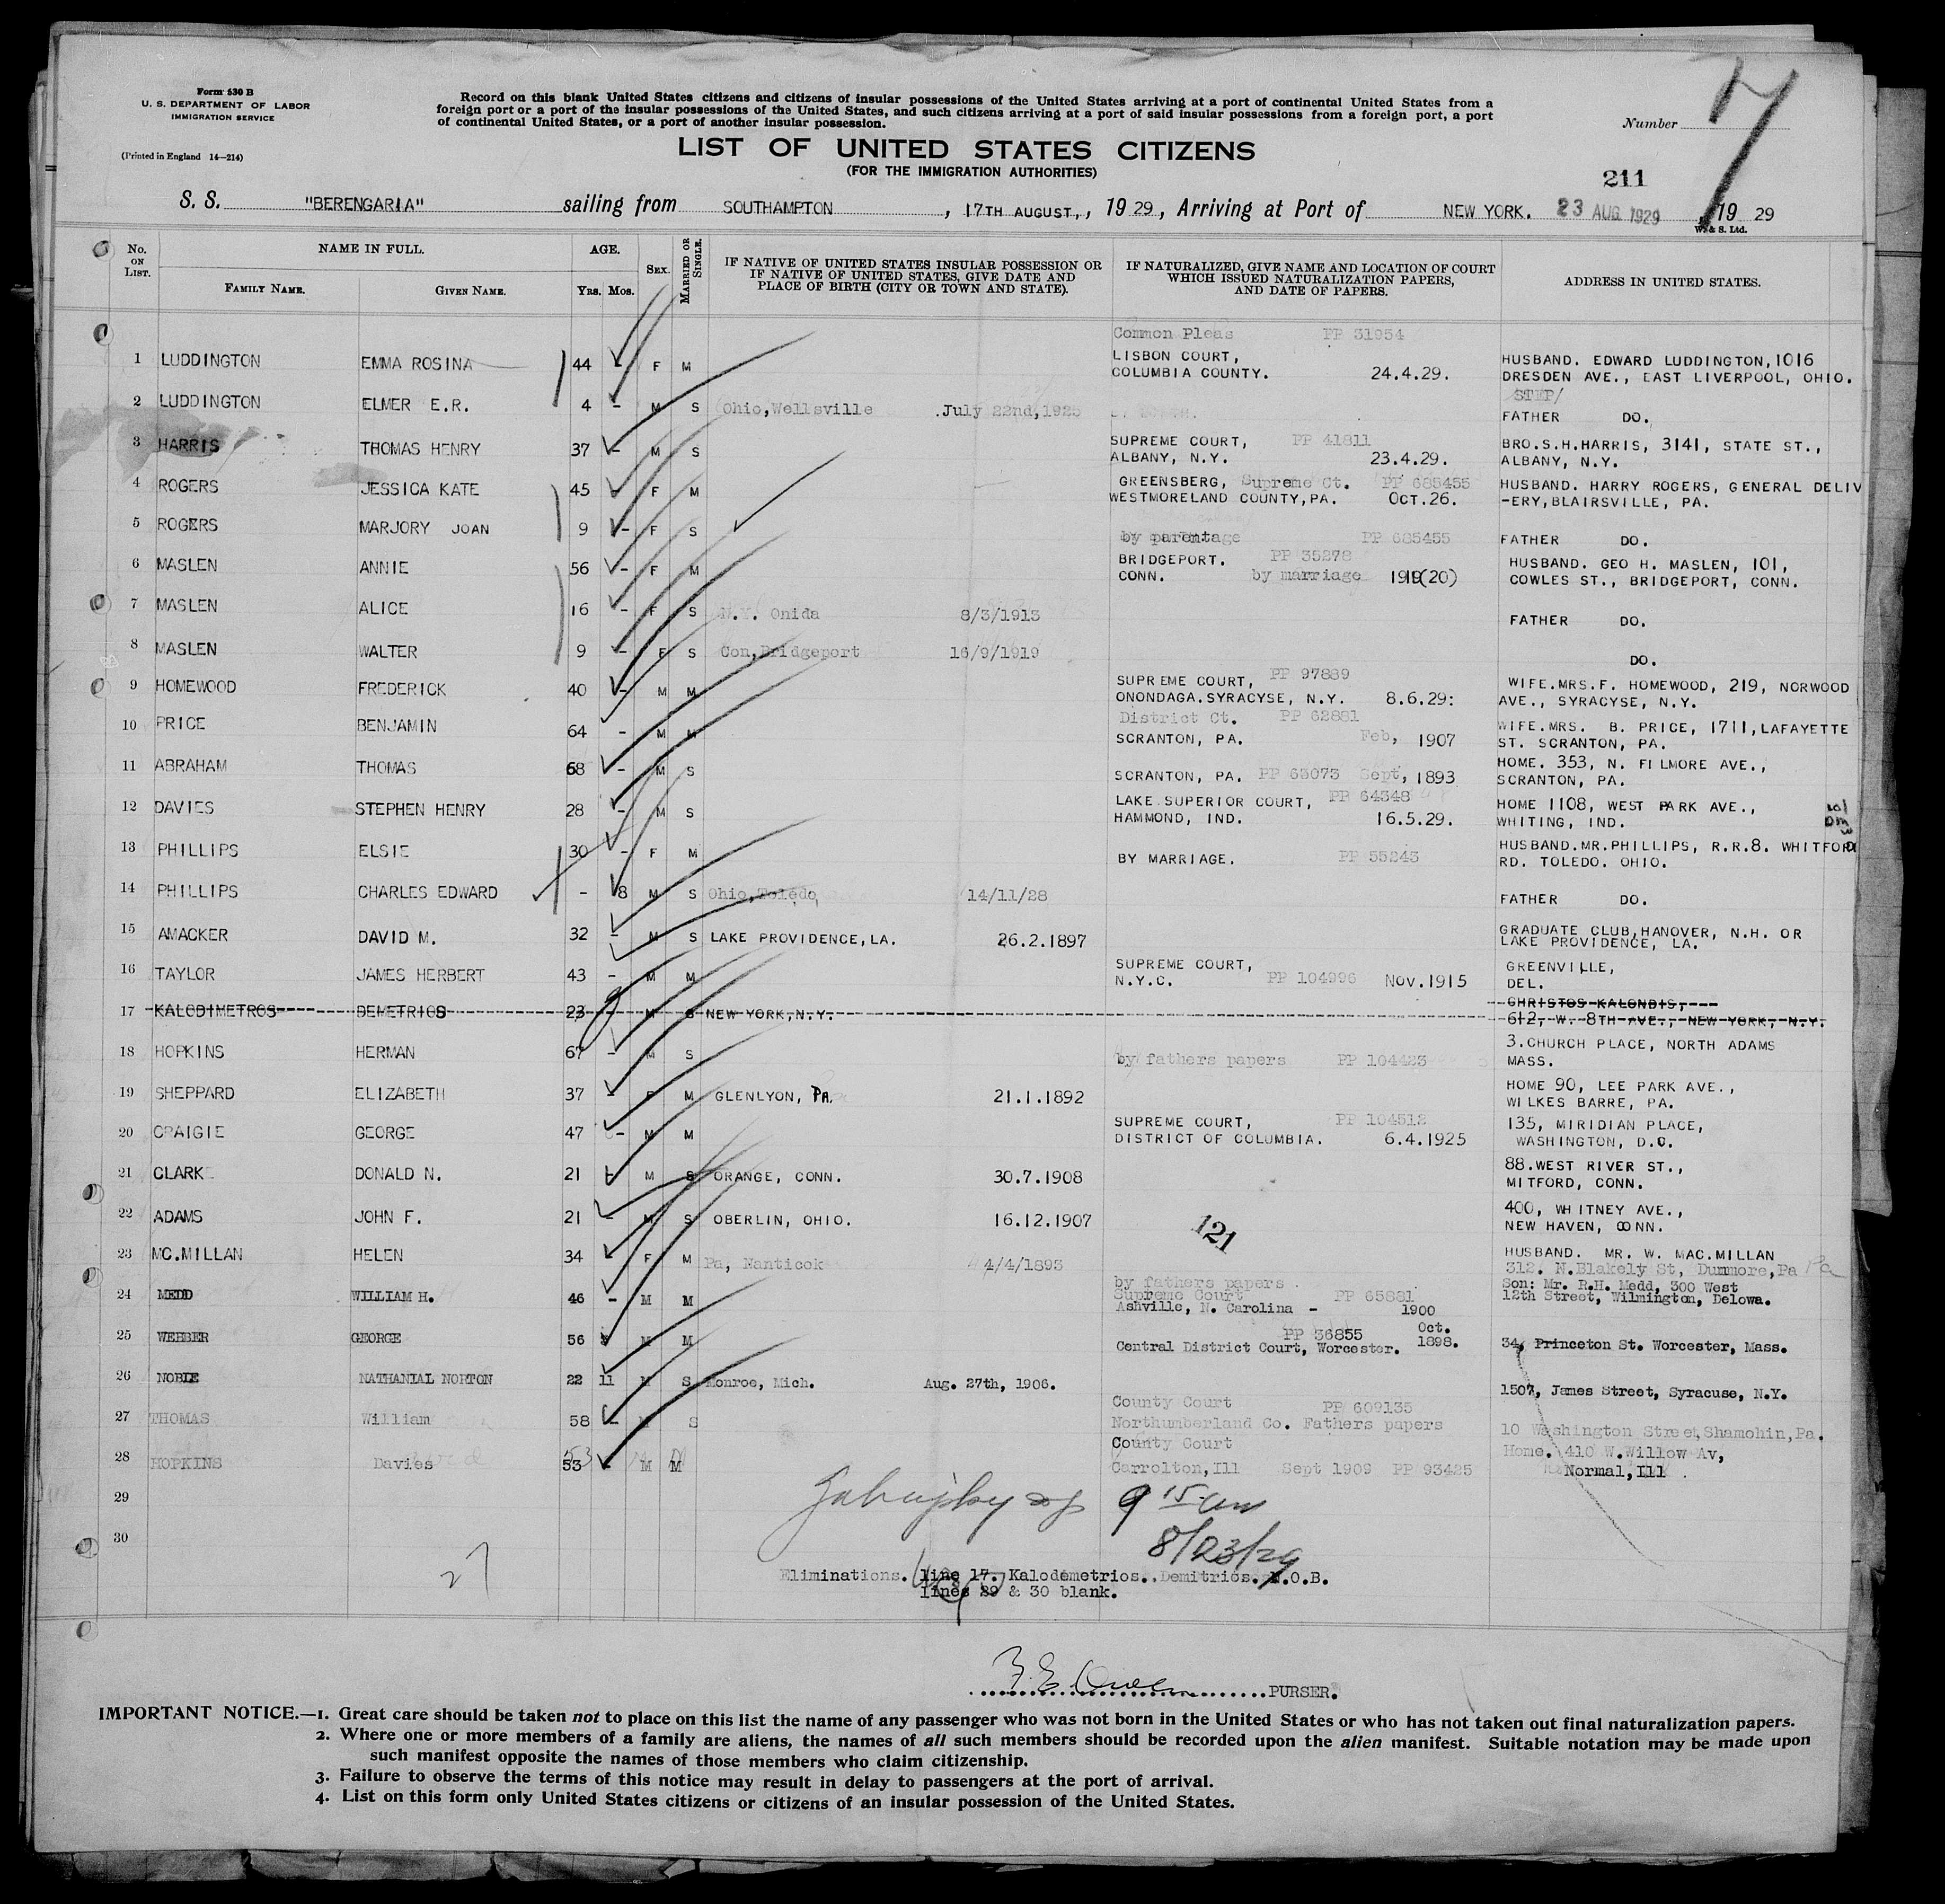 Form 630 B
U. S. DEPARTMENT OF LABOR
IMMIGRATION SERVICE
(Printed in England 14—214)
Record on this blank United States citizens and citizens of insular possessions of the United States arriving at a port of continental United States from a
foreign port or a port of the insular possessions of the United States, and such citizens arriving at a port of said insular possessions from a foreign port, a port
of continental United States, or a port of another insular possession.
Number 7
LIST OF UNITED STATES CITIZENS
(FOR THE IMMIGRATION AUTHORITIES)
211
S. S. "BERENGARIA" sailing from SOUTHAMPTON, 17TH AUGUST,, 19 29, Arriving at Port of NEW YORK. 23 AUG 1929 19 29
W. & S. Ltd.
No. ON LIST. NAME IN FULL. FAMILY NAME. GIVEN NAME. AGE. Yrs. Mos. SEX. MARRIED OR SINGLE. IF NATIVE OF UNITED STATES INSULAR POSSESSION OR IF NATIVE OF UNITED STATES, GIVE DATE AND PLACE OF BIRTH (CITY OR TOWN AND STATE). IF NATURALIZED, GIVE NAME AND LOCATION OF COURT WHICH ISSUED NATURALIZATION PAPERS, AND DATE OF PAPERS. ADDRESS IN UNITED STATES.
Common Pleas PP 31954
1 LUDDINGTON EMMA ROSINA 44 F M LISBON COURT, COLUMBIA COUNTY. 24.4.29. HUSBAND. EDWARD LUDDINGTON, 1016 DRESDEN AVE., EAST LIVERPOOL, OHIO.
2 LUDDINGTON ELMER E.R. 4 - M S Ohio, Wellsville July 22nd, 1925 STEP/ FATHER DO.
3 HARRIS THOMAS HENRY 37 - M S SUPREME COURT, PP 41811 ALBANY, N.Y. 23.4.29. BRO.S.H.HARRIS, 3141, STATE ST., ALBANY, N.Y.
4 ROGERS JESSICA KATE 45 F M GREENSBERG, Supreme Ct. PP 685455 WESTMORELAND COUNTY, PA. OCT.26. HUSBAND. HARRY ROGERS, GENERAL DELIV -ERY, BLAIRSVILLE, PA.
5 ROGERS MARJORY JOAN 9 - F S by parentage PP 685455 FATHER DO.
6 MASLEN ANNIE 56 - F M BRIDGEPORT. PP 35278 CONN. by marriage 1919(20) HUSBAND. GEO H. MASLEN, 101, COWLES ST., BRIDGEPORT, CONN.
7 MASLEN ALICE 16 - F S N.Y. Onida 8/3/1913 FATHER DO.
8 MASLEN WALTER 9 - F S Con, Bridgeport 16/9/1919 DO.
9 HOMEWOOD FREDERICK 40 - M M SUPREME COURT, PP 97889 ONONDAGA.SYRACYSE, N.Y. 8.6.29: WIFE.MRS.F. HOMEWOOD, 219, NORWOOD AVE., SYRACYSE, N.Y.
10 PRICE BENJAMIN 64 - M M District Ct. PP 62881 SCRANTON, PA. Feb, 1907 WIFE.MRS. B. PRICE, 1711, LAFAYETTE ST. SCRANTON, PA.
11 ABRAHAM THOMAS 68 - M S SCRANTON, PA. PP 63073 Sept, 1893 HOME. 353, N. FILMORE AVE., SCRANTON, PA.
12 DAVIES STEPHEN HENRY 28 - M S LAKE SUPERIOR COURT, PP 64348 HAMMOND, IND. 16.5.29. HOME 1108, WEST PARK AVE., WHITING, IND.
13 PHILLIPS ELSIE 30 - F M BY MARRIAGE. PP 55243 HUSBAND.MR.PHILLIPS, R.R.8. WHITFORD RD. TOLEDO. OHIO.
14 PHILLIPS CHARLES EDWARD - 8 M S Ohio, Toledo, 14/11/28 FATHER DO.
15 AMACKER DAVID M. 32 - M S LAKE PROVIDENCE, LA. 26.2.1897 GRADUATE CLUB, HANOVER, N.H. OR LAKE PROVIDENCE, LA.
16 TAYLOR JAMES HERBERT 43 - M M SUPREME COURT, N.Y.C. PP 104996 Nov.1915 GREENVILLE, DEL.
17 KALODIMETROS DEMETRIOS 23 M S NEW YORK, N.Y. CHRISTOS KALONDIS, 612, W. 8TH AVE., NEW YORK, N.Y.
18 HOPKINS HERMAN 67 - M S by fathers papers PP 104423 3.CHURCH PLACE, NORTH ADAMS MASS.
19 SHEPPARD ELIZABETH 37 - F M GLENLYON, PA. 21.1.1892 HOME 90, LEE PARK AVE., WILKES BARRE, PA.
20 CRAIGIE GEORGE 47 - M M SUPREME COURT, PP 104512 DISTRICT OF COLUMBIA. 6.4.1925 135, MIRIDIAN PLACE, WASHINGTON, D.C.
21 CLARK DONALD N. 21 - M S ORANGE, CONN. 30.7.1908 88.WEST RIVER ST., MITFORD, CONN.
22 ADAMS JOHN F. 21 - M S OBERLIN, OHIO. 16.12.1907 400, WHITNEY AVE., NEW HAVEN, CONN.
121
23 MC.MILLAN HELEN 34 - F M Pa, Nanticok 4/4/1895 HUSBAND. MR. W. MAC.MILLAN 312. N.Blakely St, Dunmore, Pa
24 MEDD WILLIAM H. 46 - M M by fathers papers. Supreme Court PP 65881 Ashville, N. Carolina - 1900 Son: Mr. R.H. Medd, 300 West 12th Street, Wilmington, Delowa.
25 WEBBER GEORGE 56 M M PP 36855 Oct. Central District Court, Worcester. 1898. 34, Princeton St. Worcester, Mass.
26 NOBLE NATHANIAL NORTON 22 11 M S Monroe, Mich. Aug. 27th, 1906. 1507, James Street, Syracuse, N.Y.
27 THOMAS William 58 - M S County Court PP 609135 Northumberland Co. Fathers papers 10 Washington Street, Shamohin, Pa.
28 HOPKINS Davies 53 - M M County Court Carrolton, Ill Sept 1909 PP 93425 Home. 410 W.Willow Av, Normal, Ill.
29
30
9 15 am
8/23/29
27
Eliminations. line 17. Kalodemetrios. Demitrios. N.O.B.
lines 29 & 30 blank.
PURSER.
IMPORTANT NOTICE.—1. Great care should be taken not to place on this list the name of any passenger who was not born in the United States or who has not taken out final naturalization papers.
2. Where one or more members of a family are aliens, the names of all such members should be recorded upon the alien manifest. Suitable notation may be made upon
such manifest opposite the names of those members who claim citizenship.
3. Failure to observe the terms of this notice may result in delay to passengers at the port of arrival.
4. List on this form only United States citizens or citizens of an insular possession of the United States.